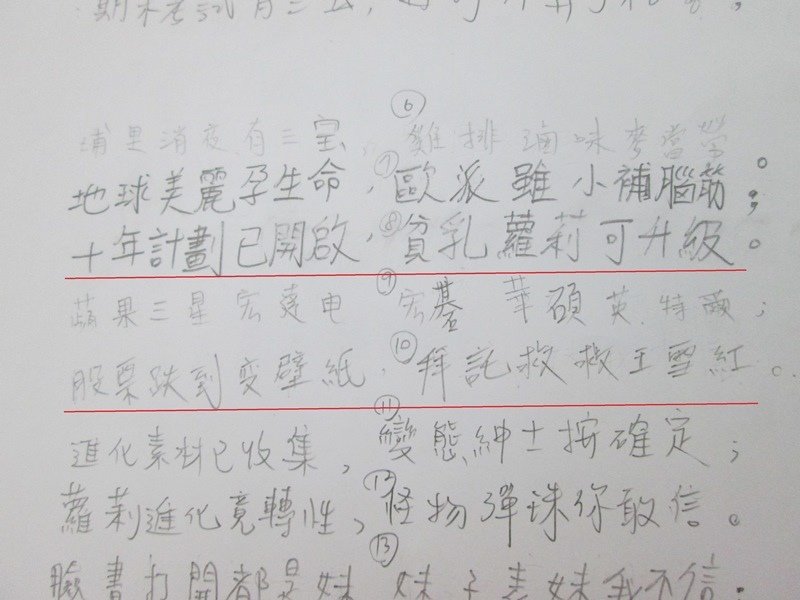 期末考試有三
⑥
埔里消夜有三宝，雞排滷味麥當勞。
⑦
地球美麗孕生命，歐派雖小補腦筋；
⑧
十年計劃已開啟，貧乳蘿莉可升級。
⑨
蘋果三星宏達电 宏碁 華碩英特爾；
⑩
股票跌到变壁紙，拜託救救王雪紅。
⑪
進化素材已收集，變態紳士按確定；
⑫
蘿莉進化竟轉性，怪物彈珠你敢信。
⑬
臉書打開都是妹，妹子表妹我不信；